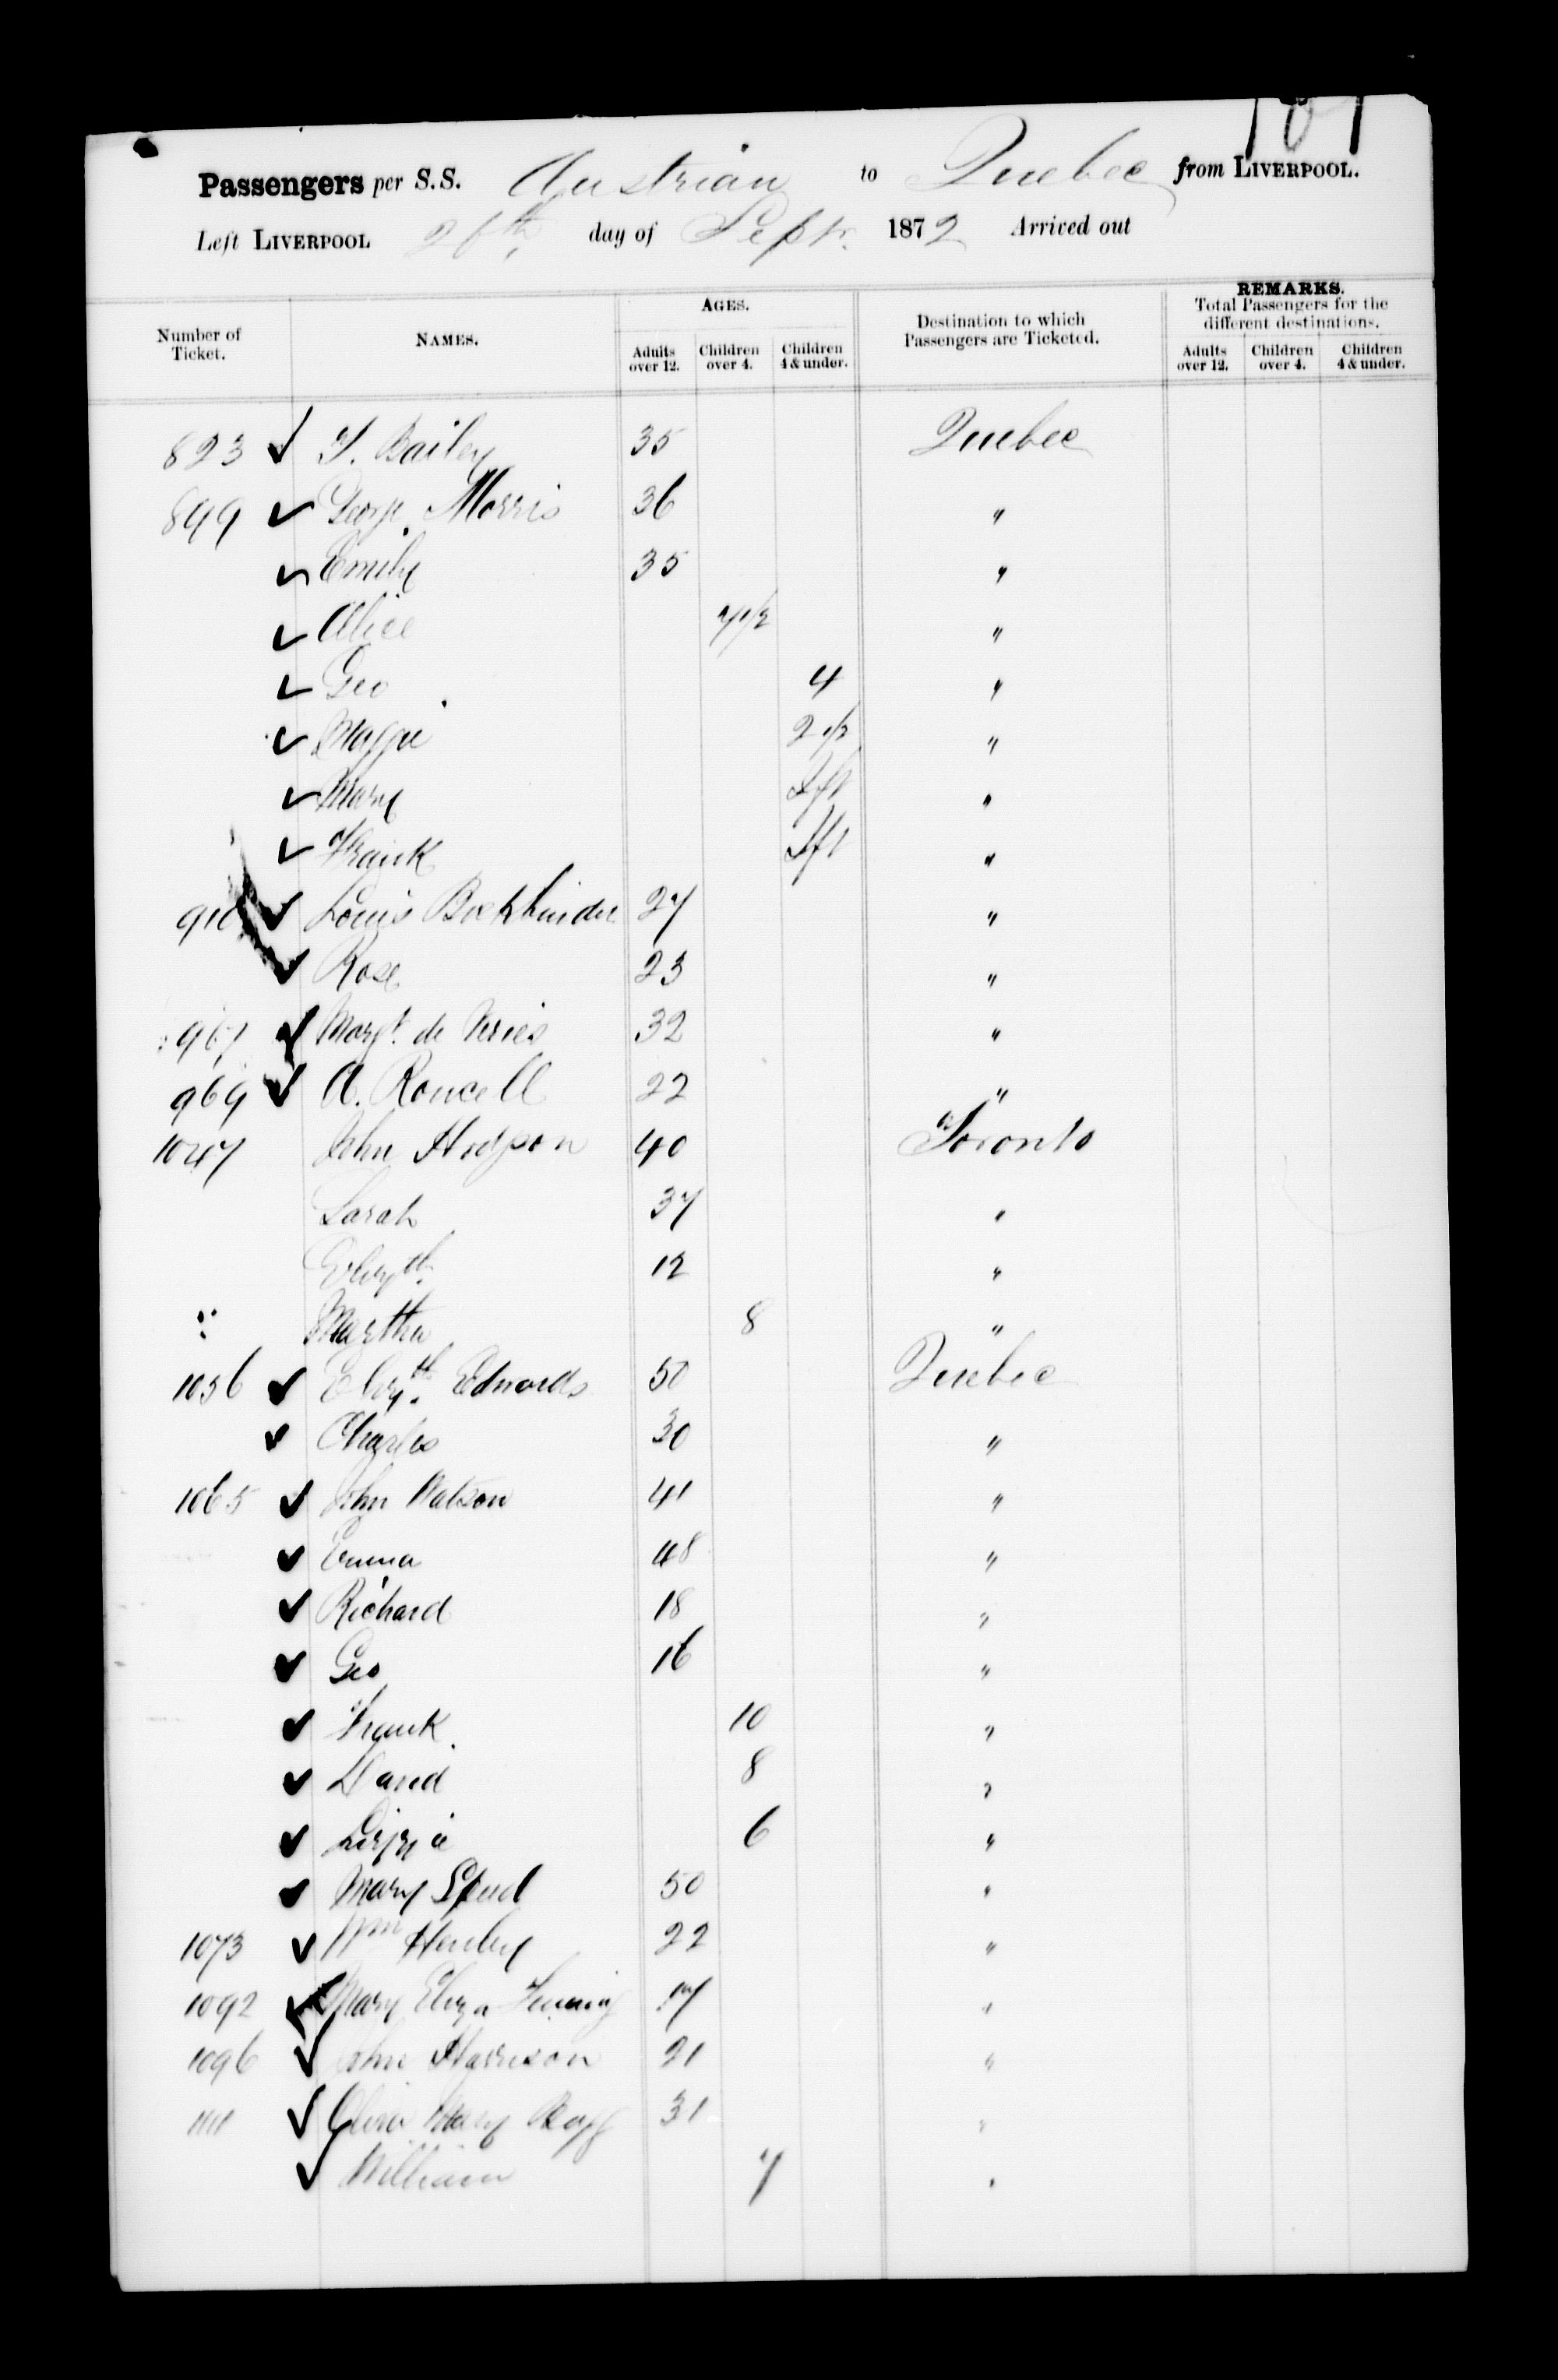 Passengers per S.S. Austrian to Quebec from LIVERPOOL.
Left LIVERPOOL 26th, day of Septr. 1872 Arrived out
Number of Ticket. NAMES. AGES. Destination to which Passengers are Ticketed. REMARKS. Total Passengers for the different destinations.
Adults over 12. Children over 4. Children 4 & under. Adults over 12. Children over 4. Children 4 & under.
823 ✓ Bailey 35 Quebec
899 ✓ George Morris 36 "
✓ Emily 35 "
✓ Alice 7 1/2 "
✓ Geo 4 "
✓ Maggie 2 1/2 "
✓ Mary Ift "
✓ Frank Ift "
910 ✓ Louis Bookbinder 27 "
✓ Rose 23 "
967 ✓ Margt. de Vries 32 "
969 ✓ A. Roucell 22 "
1047 John Hodgson 40 Toronto
Sarah 37 "
Elizth. 12 "
Martha 8 "
1056 ✓ Elizth. Edwards 50 Quebec
✓ Charles 30 "
1065 ✓ John Watson 41 "
✓ Emma 48 "
✓ Richard 18 "
✓ Geo 16 "
✓ Frank 10 "
✓ David 8 "
✓ Lizzie 6 "
✓ Mary 50 "
1073 ✓ Wm Henley 22 "
1092 ✓ Mary Eliza 17 "
1096 ✓ John Harrison 21 "
1111 ✓ Mary 31 "
✓ William 7 "